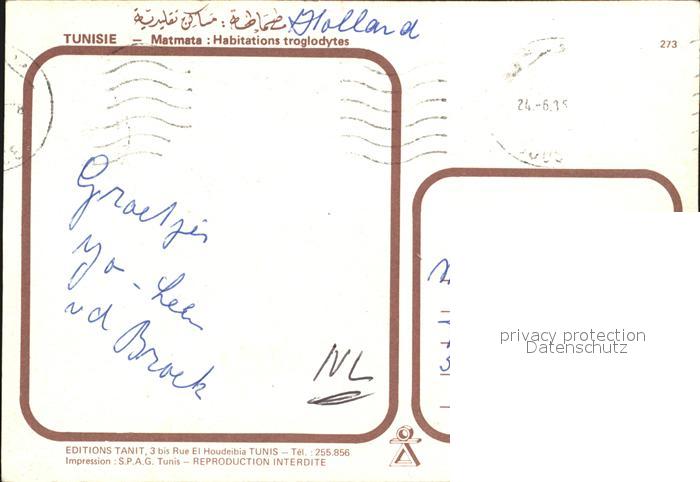 مطماطة : مساكن تقليدية Holland
TUNISIE – Matmata : Habitations troglodytes
273
24.-6.
Groetjes
Yo - Leen
vd Broek
NL
privacy protection
Datenschutz
EDITIONS TANIT, 3 bis Rue El Houdeibia TUNIS – Tél. : 255.856
Impression : S.P.A.G. Tunis – REPRODUCTION INTERDITE